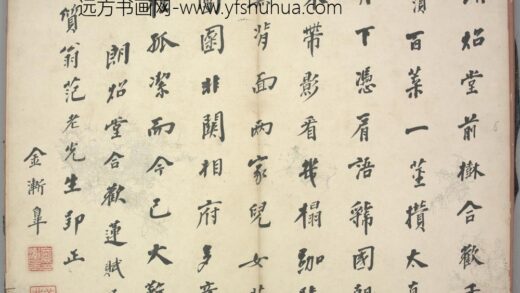 远方书画网-www.yfshuhua.com
炤堂前樹合歡
百葉一莖攢太真
下憑肩語虢國朝
帶影看幾榻跏
背面兩家兒女
圖非關相府多
孤潔而今已大
朗炤堂合歡蓮賦
質翁范老先生郢正
金漸皐